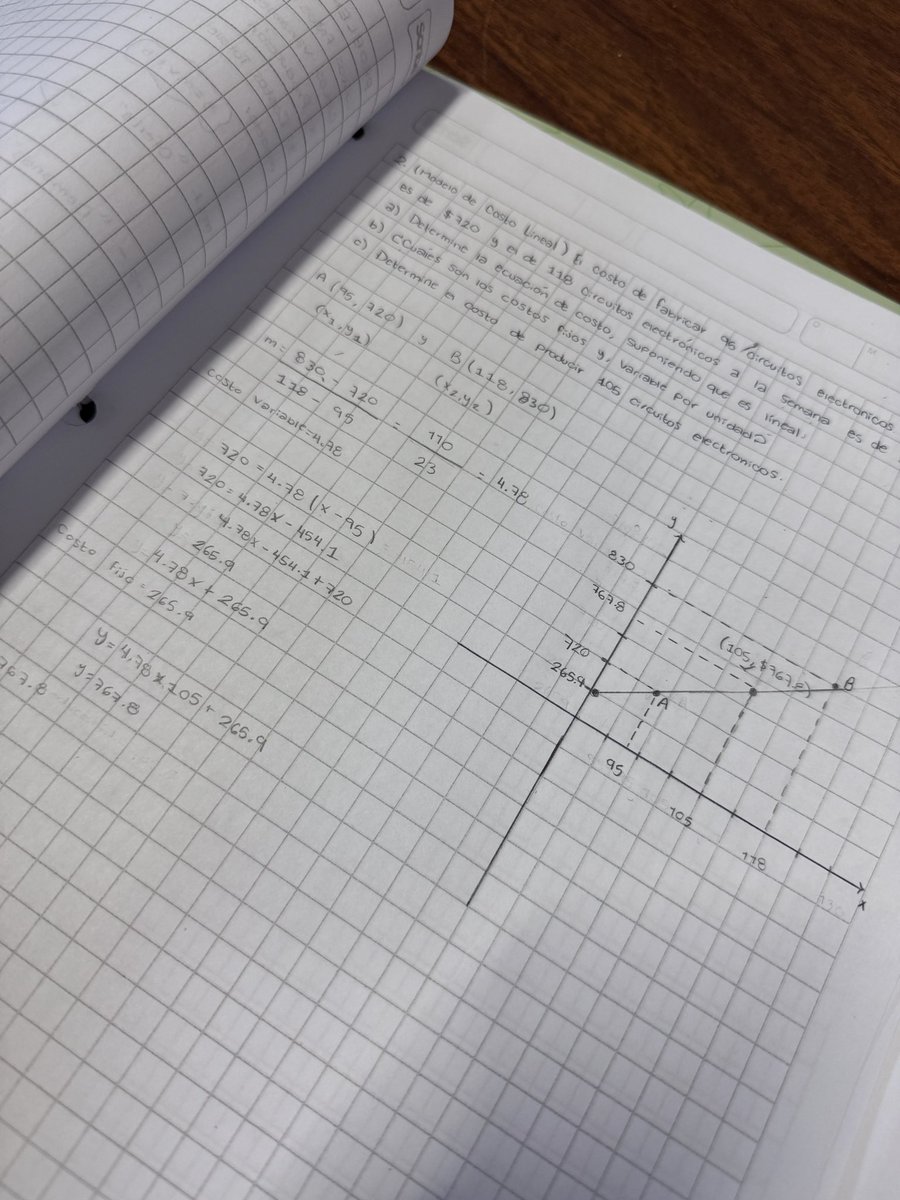 2. (Modelo de Costo Lineal) El costo de fabricar 95 circuitos electrónicos
es de $720 y el de 118 circuitos electrónicos a la semana es de
a) Determine la ecuación de costo, suponiendo que es lineal.
b) ¿Cuáles son los costos fijos y, variable por unidad?
c) Determine el costo de producir 105 circuitos electronicos.
A (95, 720) y B (118, 830)
(x1, y1) (x2, y2)
m = 830 - 720 / 118 - 95 = 110 / 23 = 4.78
Costo variable = 4.78
720 = 4.78 (x - 95)
720 = 4.78x - 454.1
4.78x - 454.1 + 720
265.9
4.78x + 265.9
Costo fijo = 265.9
y = 4.78 x 105 + 265.9
767.8 y = 767.8
y
830
767.8
720
265.9
(105, $767.8)
A
B
95
105
118
130
x